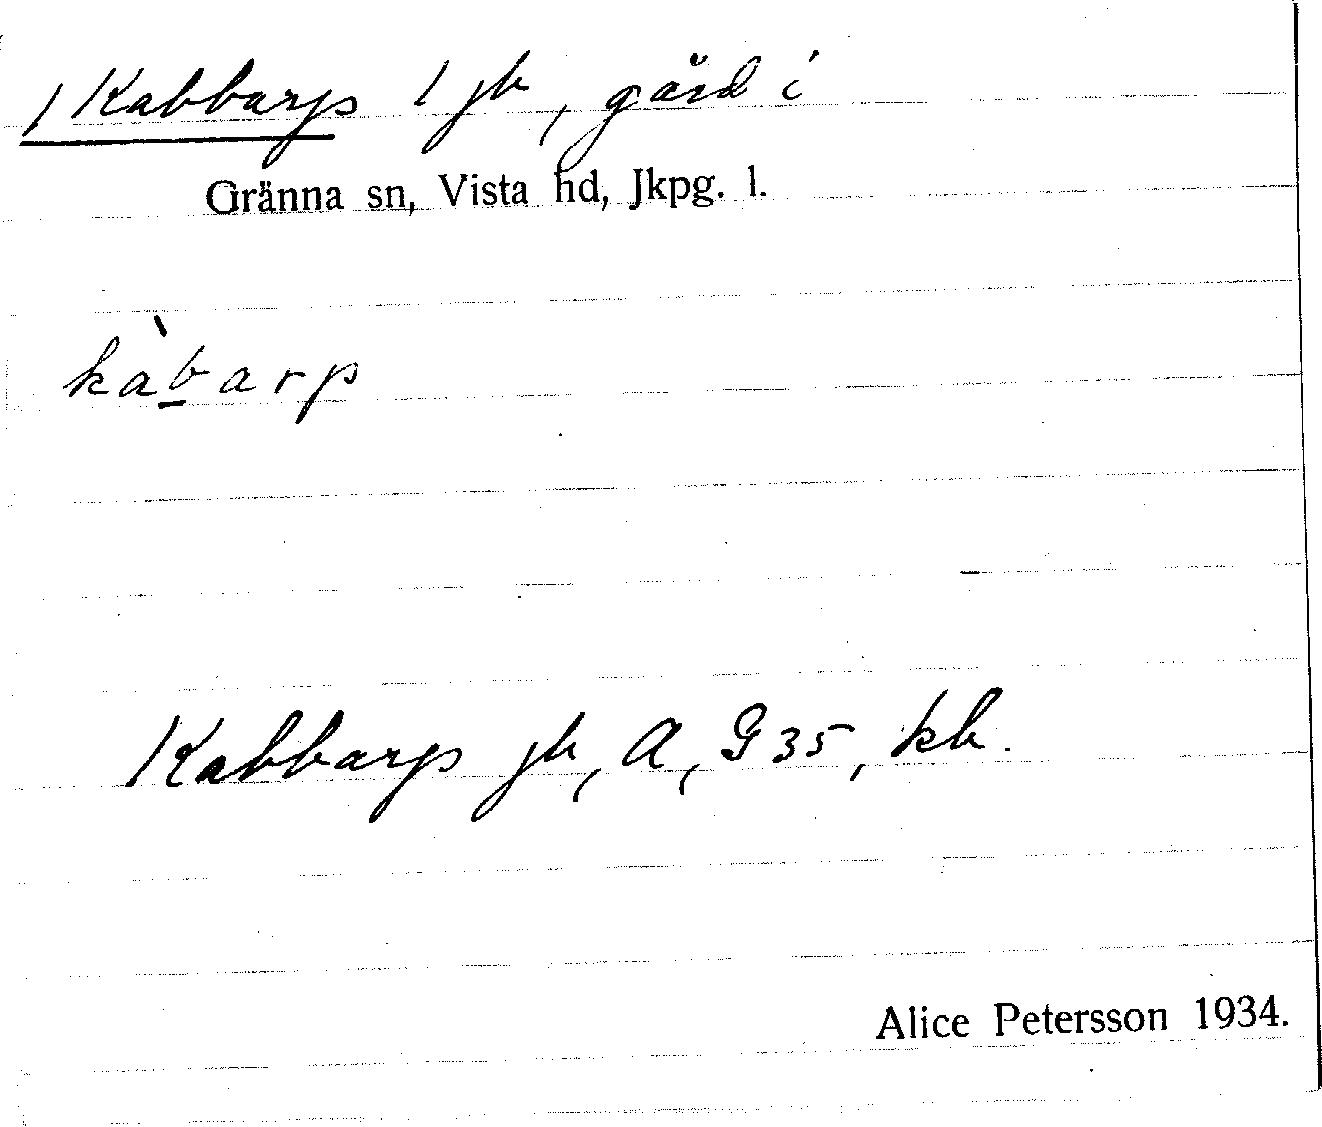 /Kabbarp 1 jb, gård i
Gränna sn, Vista hd, Jkpg. l.
kàb̲arp
Kabbarp jb, A, G35, kb.
Alice Petersson 1934.